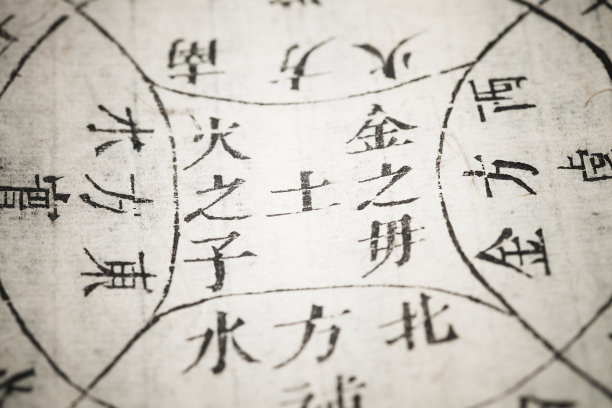 南方火
東方木
實
金之毋
土
火之子
西方金
北方水